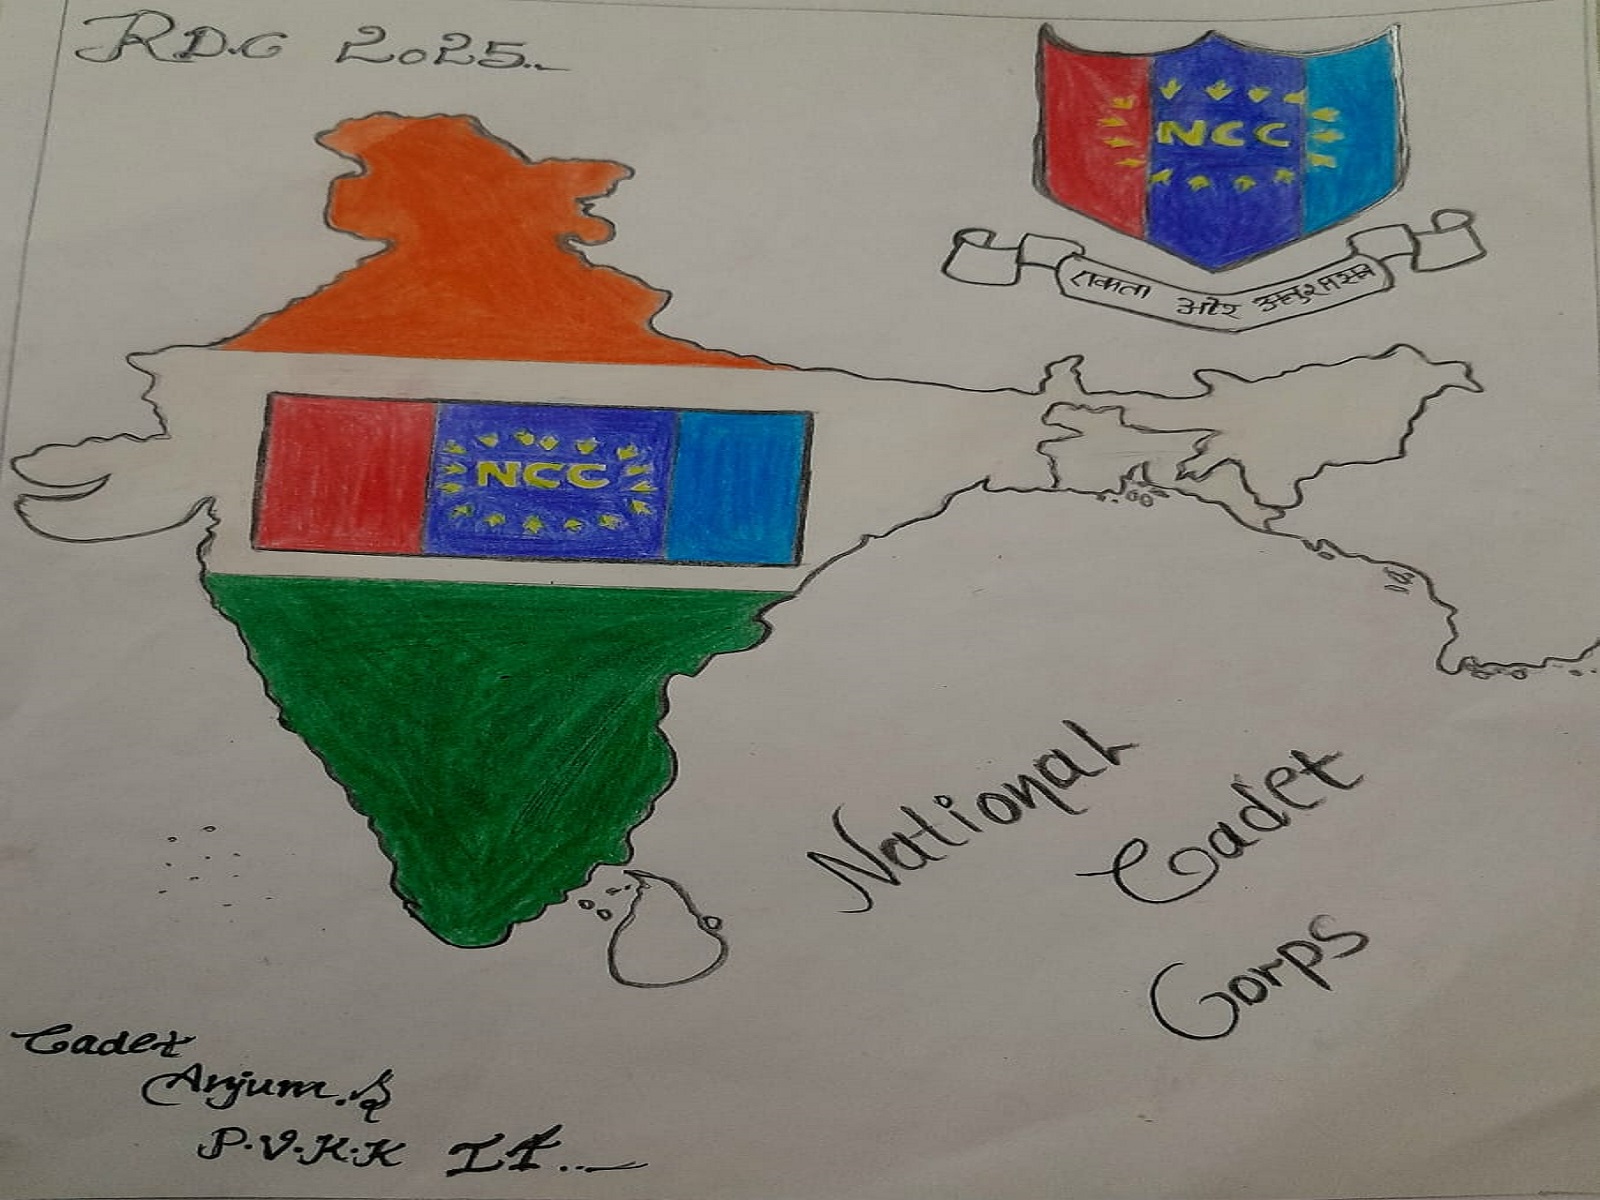 RDC 2025...
NCC
एकता और अनुशासन
NCC
National
Cadet
Corps
Cadet
Anjum.S
P.V.K.K IT...